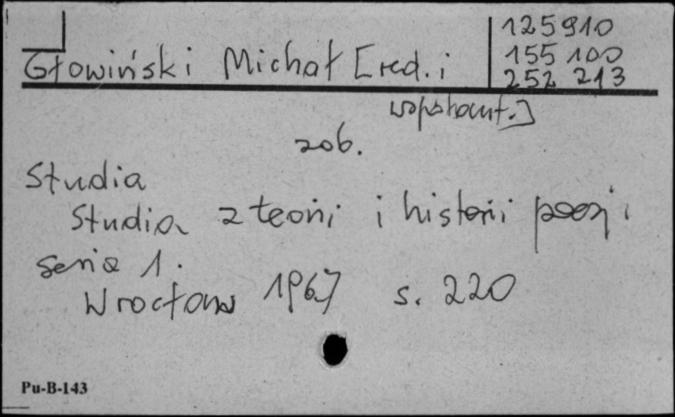 125910
155 100
252 213
Głowiński Michał [red. i
współaut.]
zob.
Studia
Studia z teorii i historii poezji
seria 1.
Wrocław 1967 s. 220
Pu-B-143